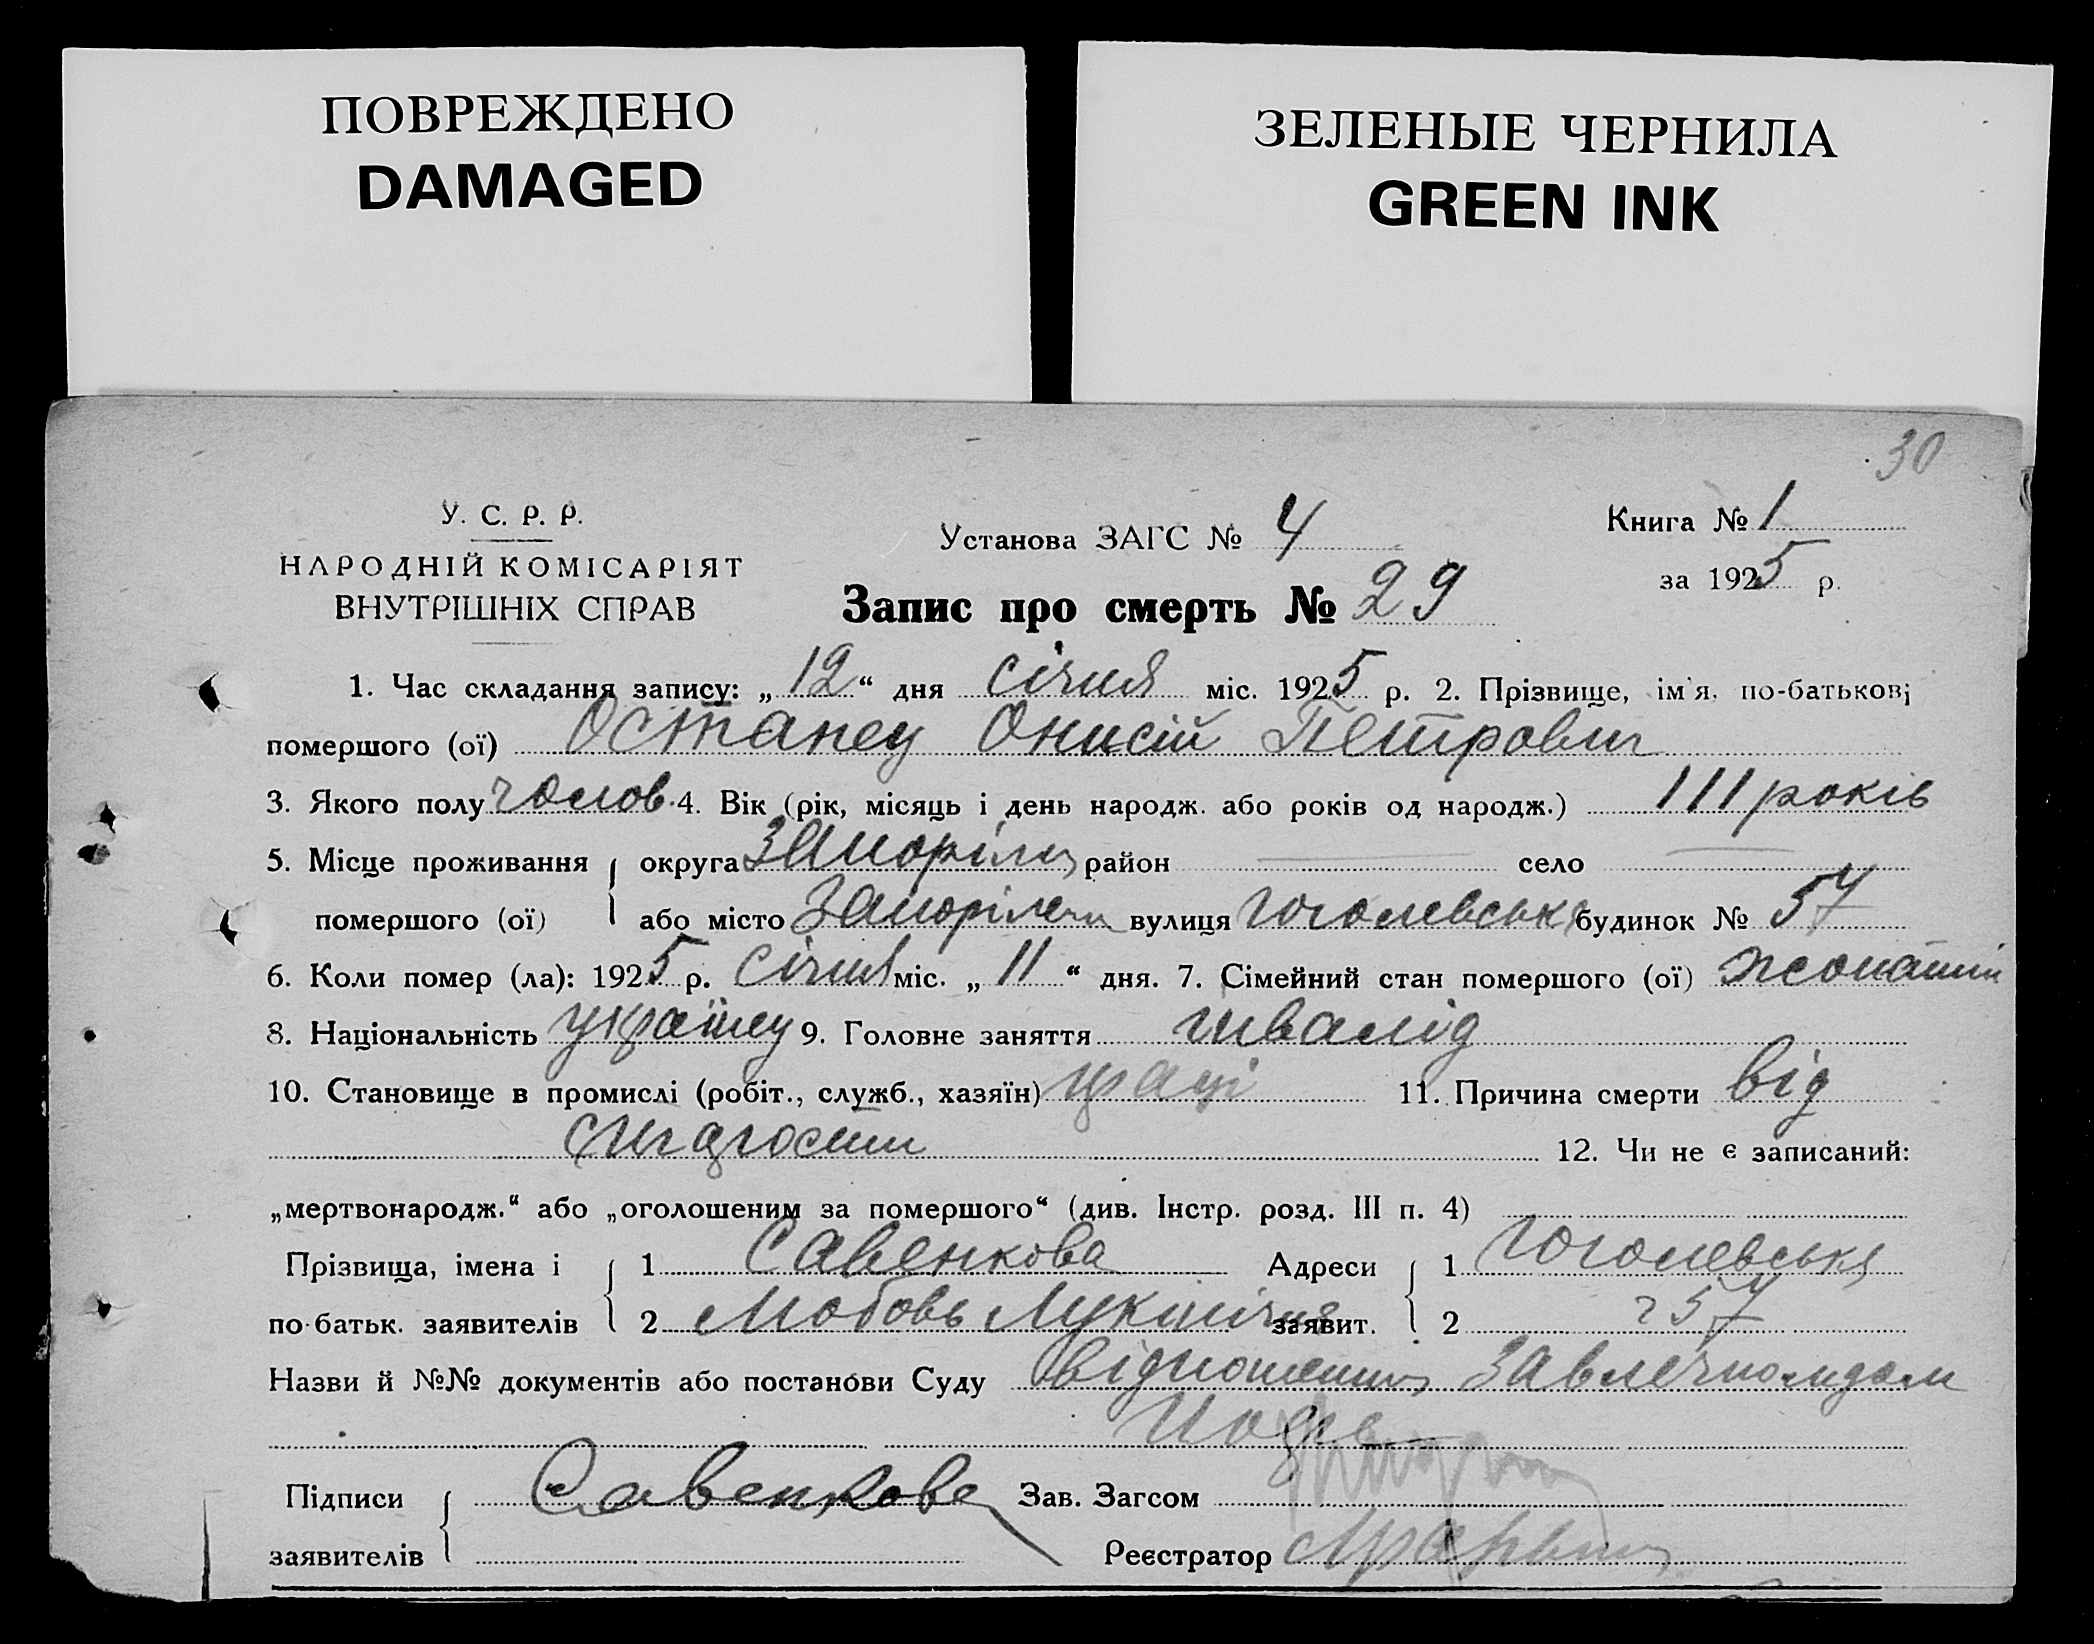 ПОВРЕЖДЕНО
DAMAGED
ЗЕЛЕНЫЕ ЧЕРНИЛА
GREEN INK
30
У. С. Р. Р.
НАРОДНІЙ КОМІСАРІЯТ
ВНУТРІШНІХ СПРАВ
Установа ЗАГС № 4
Книга № 1
за 1925 р.
Запис про смерть № 29
1. Час складання запису: „ 12 “ дня січня міс. 1925 р. 2. Прізвище, ім'я, по-батькові
помершого (ої) Остапец Онисій Петрович
3. Якого полу чолов. 4. Вік (рік, місяць і день народж. або років од народж.) 111 років
5. Місце проживання округа район село
помершого (ої) або місто вулиця Гоголевська будинок № 57
6. Коли помер (ла): 1925 р. Січня міс. „ 11 “ дня. 7. Сімейний стан помершого (ої) жонатий
8. Національність українец 9. Головне заняття інвалід
10. Становище в промислі (робіт., служб., хазяїн) праці 11. Причина смерти від
старости 12. Чи не є записаний:
„мертвонародж.“ або „оголошеним за помершого“ (див. Інстр. розд. III п. 4)
Прізвища, імена і 1 Савенкова Адреси 1 Гоголевська
по-батьк. заявителів 2 Любовь Лукинічна заявит. 2 57
Назви й №№ документів або постанови Суду
Підписи Савенкова Зав. Загсом
заявителів Реєстратор